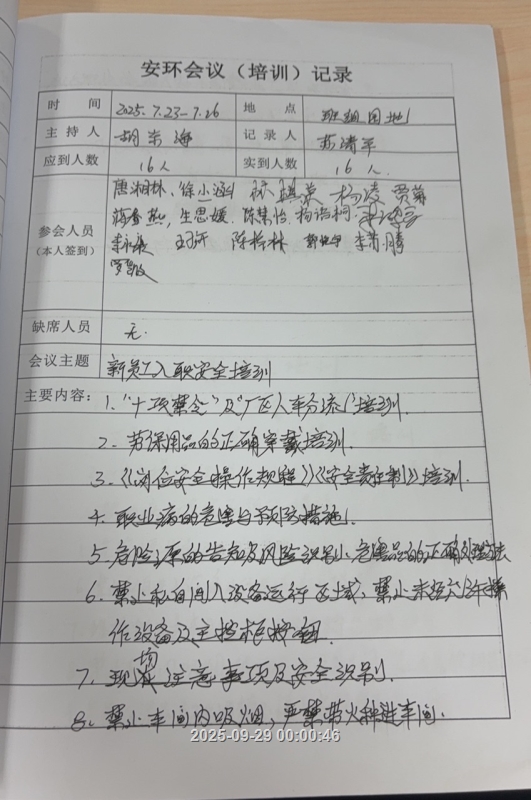 安环会议（培训）记录
时 间 2025.7.23-7.26 地 点 班组园地
主 持 人 胡 海 记 录 人 苏清平
应到人数 16人 实到人数 16人.
唐湘林、徐小涵 杨凌 贾
生思媛、陈 怡、杨 桐、
参会人员
（本人签到）
王 陈 林 李 腾
罗
缺席人员 无.
会议主题 新员工入职安全培训
主要内容：1."十项禁令"及厂区人车分流门培训.
2. 劳保用品的正确穿戴培训.
3.《岗位安全操作规程》《安全责任制》培训.
4. 职业病的危害与预防措施.
5. 危险源的告知及风险识别、危废品的正确处理方法
6. 禁止私自闯入设备运行区域，禁止未经允许操
作设备及主控柜按钮.
7. 现场注意事项及安全识别.
8. 禁止车间内吸烟，严禁带火种进车间.
2025-09-29 00:00:46